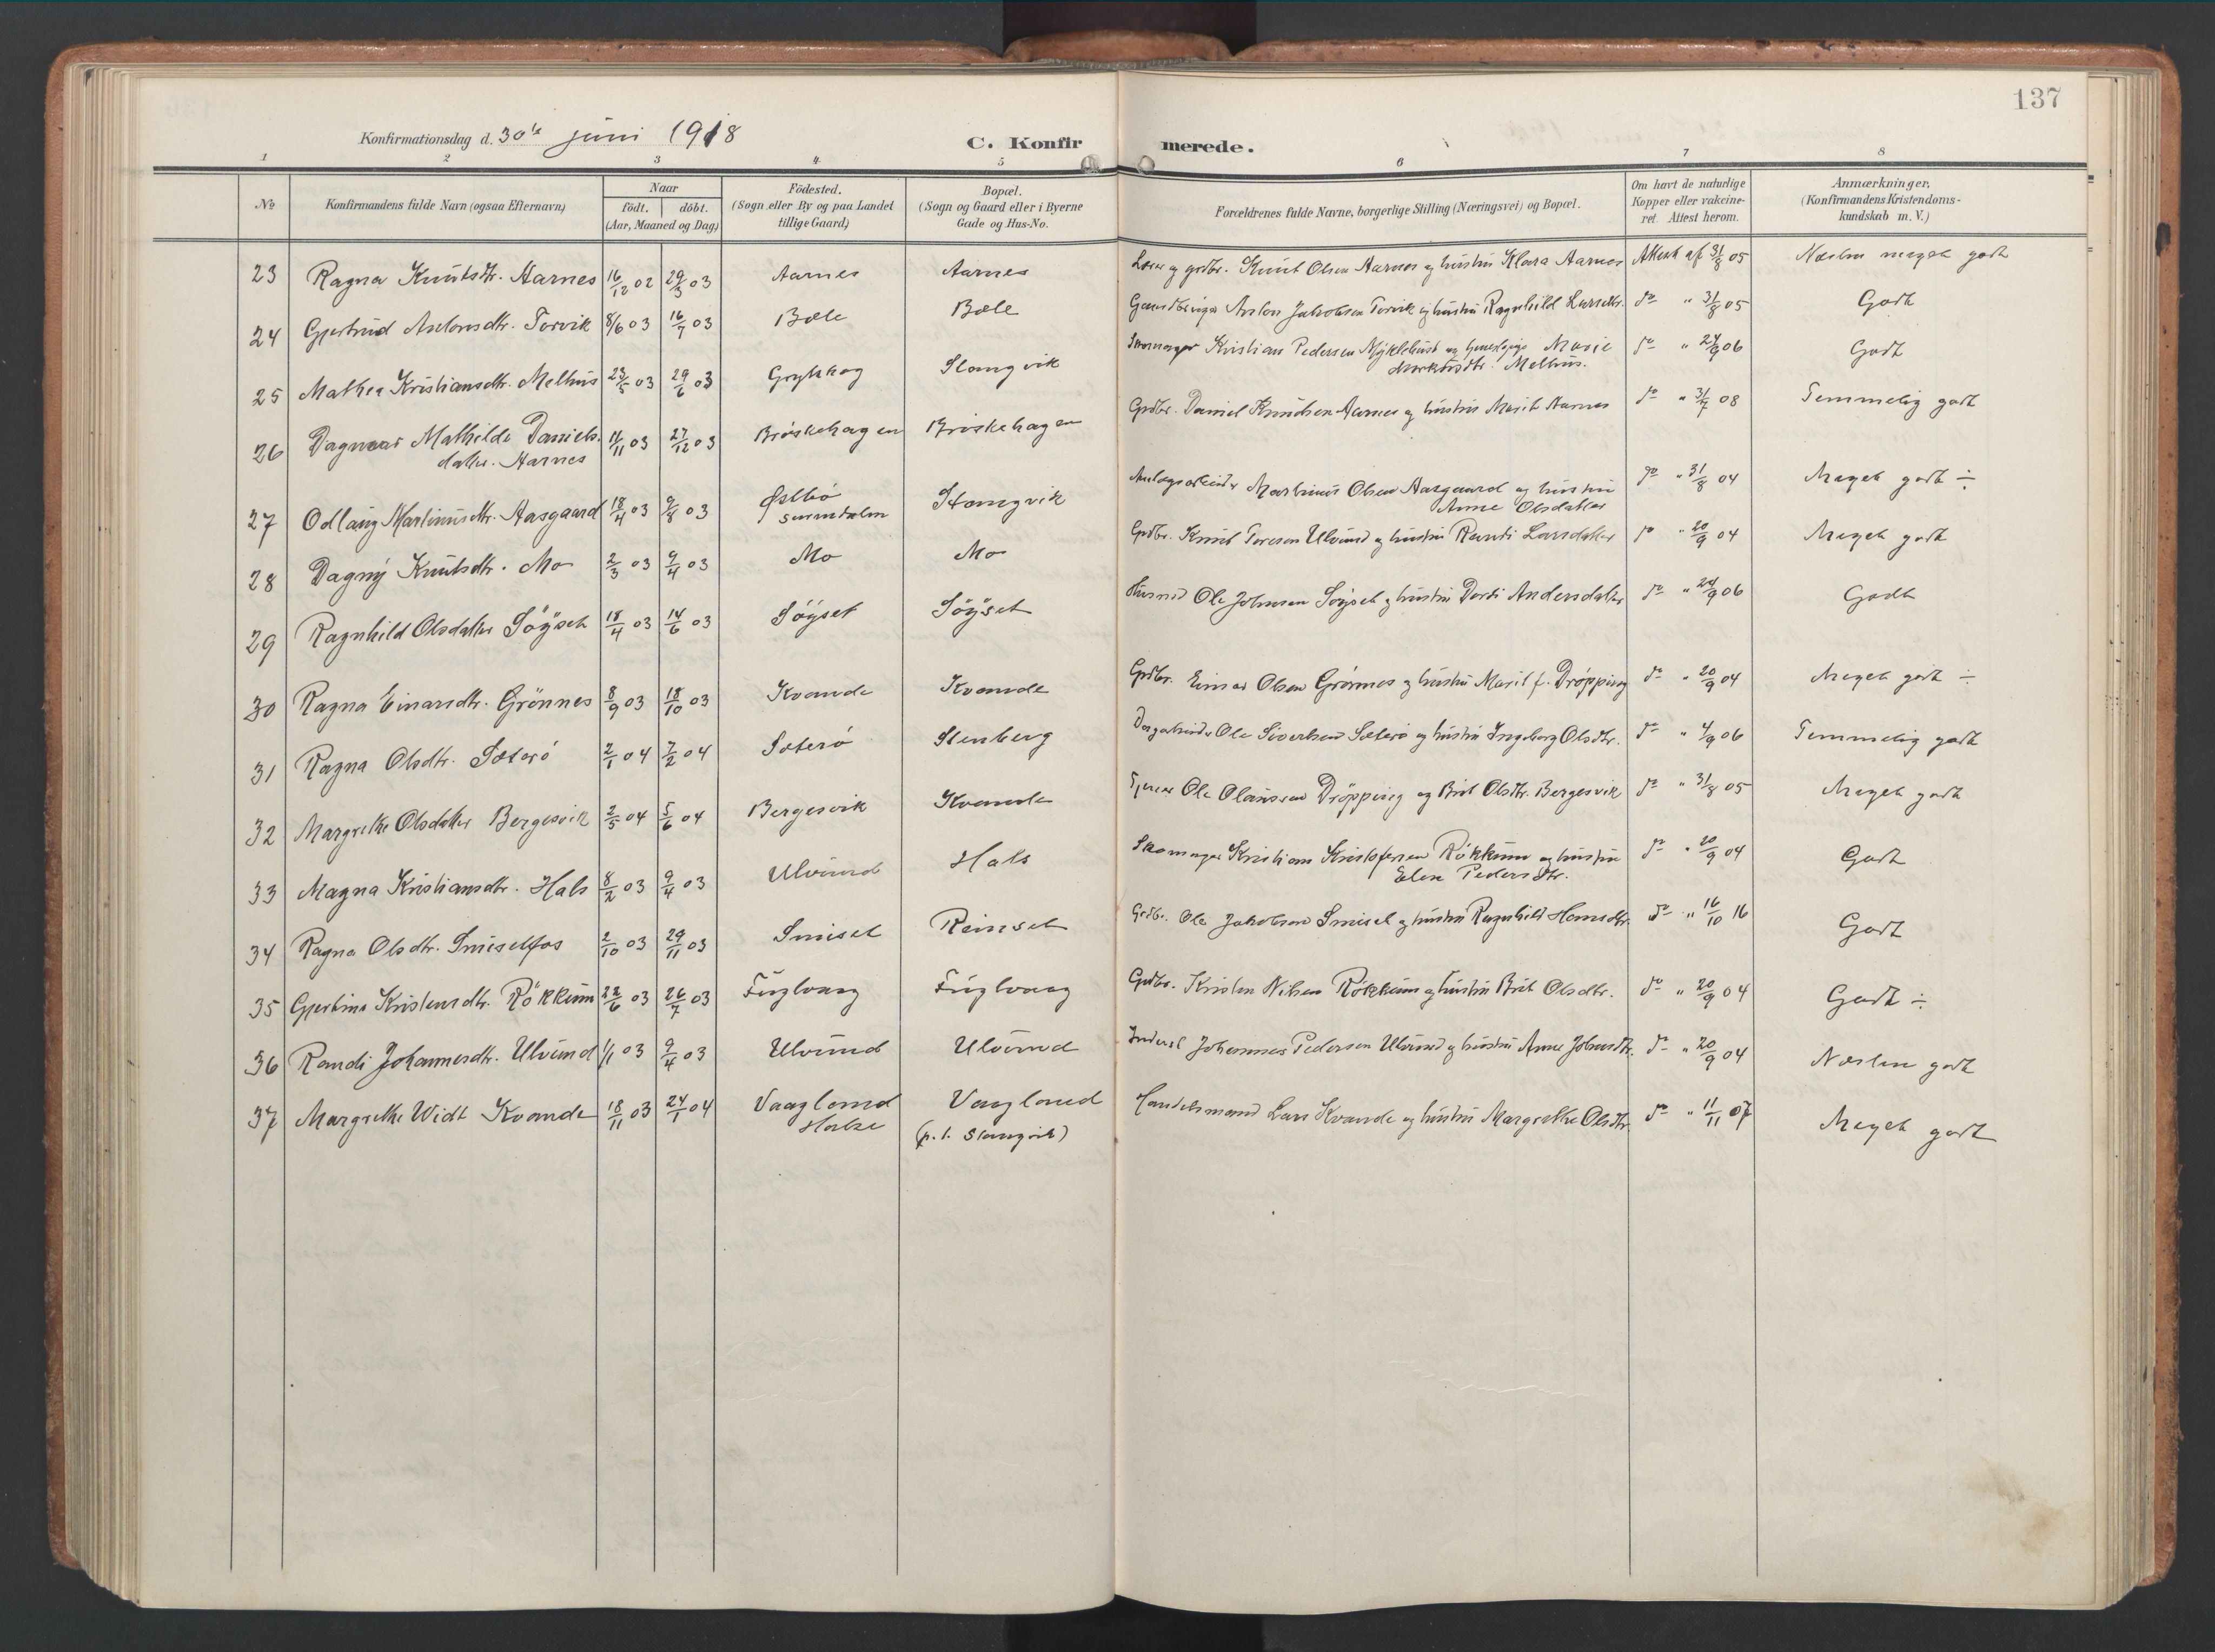 137
Konfirmationsdag d. 30te juni 1918
C. Konfirmerede.
1 2 3 4 5 6 7 8
No
Konfirmandens fulde Navn (ogsaa Efternavn)
Naar
födt. | döbt.
(Aar, Maaned og Dag)
Födested.
(Sogn eller By og paa Landet
tillige Gaard)
Bopæl.
(Sogn og Gaard eller i Byerne
Gade og Hus-No.
Forældrenes fulde Navne, borgerlige Stilling (Næringsvei) og Bopæl.
Om havt de naturlige
Kopper eller vakcine-
ret. Attest herom.
Anmærkninger,
(Konfirmandens Kristendoms-
kundskab m. V.)
23 Ragna Knutsdtr. Aarnes 16/12 02 29/3 03 Aarnes Aarnes Lærer og grdbr. Knut Olsen Aarnes og hustru Klara Aarnes Attest af 31/8 05 Næsten meget godt
24 Gjertrud Aslonsdtr. Torvik 8/6 03 16/7 03 Bæle Bæle Gaardbruger Aslon Jakobsen Torvik og hustru Ragnhild Larsdtr. do " 31/8 05 Godt
25 Mathea Kristiansdtr. Melhus 23/5 03 29/6 03 Grythaug Stangvik Skomager Kristian Pedersen Myklebust og Marie
Markusdtr. Melhus. do " 24/9 06 Godt
26 Dagmar Mathilde Daniels-
datter. Aarnes 11/11 03 27/12 03 Briskehagen Briskehagen Grdbr. Daniel Knudsen Aarnes og hustru Marit Aarnes do " 31/7 08 Temmelig godt
27 Odlaug Martinusdtr. Aasgaard 18/4 03 9/8 03 Østbö
Surendalen Stangvik Anlægsarbeider Martinus Olsen Aasgaard og hustru
Anne Olsdatter do " 31/8 04 Meget godt ÷
28 Dagny Knutsdtr. Mo 2/3 03 9/4 03 Mo Mo Grdbr. Knut Toresen Ulvund og hustru Randi Larsdatter do " 20/9 04 Meget godt
29 Ragnhild Olsdatter Söyset 18/4 03 14/6 03 Söyset Söyset Husmd Ole Johnsen Söyset og hustru Dordi Andersdatter do " 24/9 06 Godt
30 Ragna Einarsdtr. Grönnes 8/9 03 18/10 03 Kvande Kvande Grdbr. Einar Olsen Grönnes og hustru Marit f. Dröpping do " 20/9 04 Meget godt ÷
31 Ragna Olsdtr. Sæterö 2/1 04 7/2 04 Sæterö Stenberg Dagarbeider Ole Sivertsen Sæterö og hustru Ingeborg Olsdtr. do " 4/9 06 Temmelig godt
32 Margrethe Olsdatter Bergesvik 2/5 04 5/6 04 Bergesvik Kvande Tjener Ole Olaussen Dröpping og Brit Olsdtr. Bergesvik do " 31/8 05 Meget godt
33 Magna Kristiansdtr. Hals 8/2 03 9/4 03 Ulvund Hals Skomager Kristian Kristofersen Rökkum og hustru
Elen Pedersdtr. do " 20/9 04 Godt
34 Ragna Olsdtr. Smisetfos 2/10 03 29/11 03 Smiset Reinset Grdbr. Ole Jakobsen Smiset og hustru Ragnhild Hansdtr. do " 16/10 16 Godt
35 Gjertine Kristensdtr. Rökkum 22/6 03 26/7 03 Fuglvaag Fuglvaag Grdbr. Kristen Nilsen Rökkum og hustru Brit Olsdtr. do " 20/9 04 Godt ÷
36 Randi Johannesdtr. Ulvund 1/1 03 9/4 03 Ulvund Ulvund Inderst Johannes Pedersen Ulvund og hustru Anne Johnsdtr. do " 20/9 04 Næsten godt
37 Margrethe Widt Kvande 18/11 03 24/1 04 Vaagland
Halse Vaagland
(p. t. Stangvik) Handelsmand Lars Kvande og hustru Margrethe Olsdtr. do " 11/11 07 Meget godt